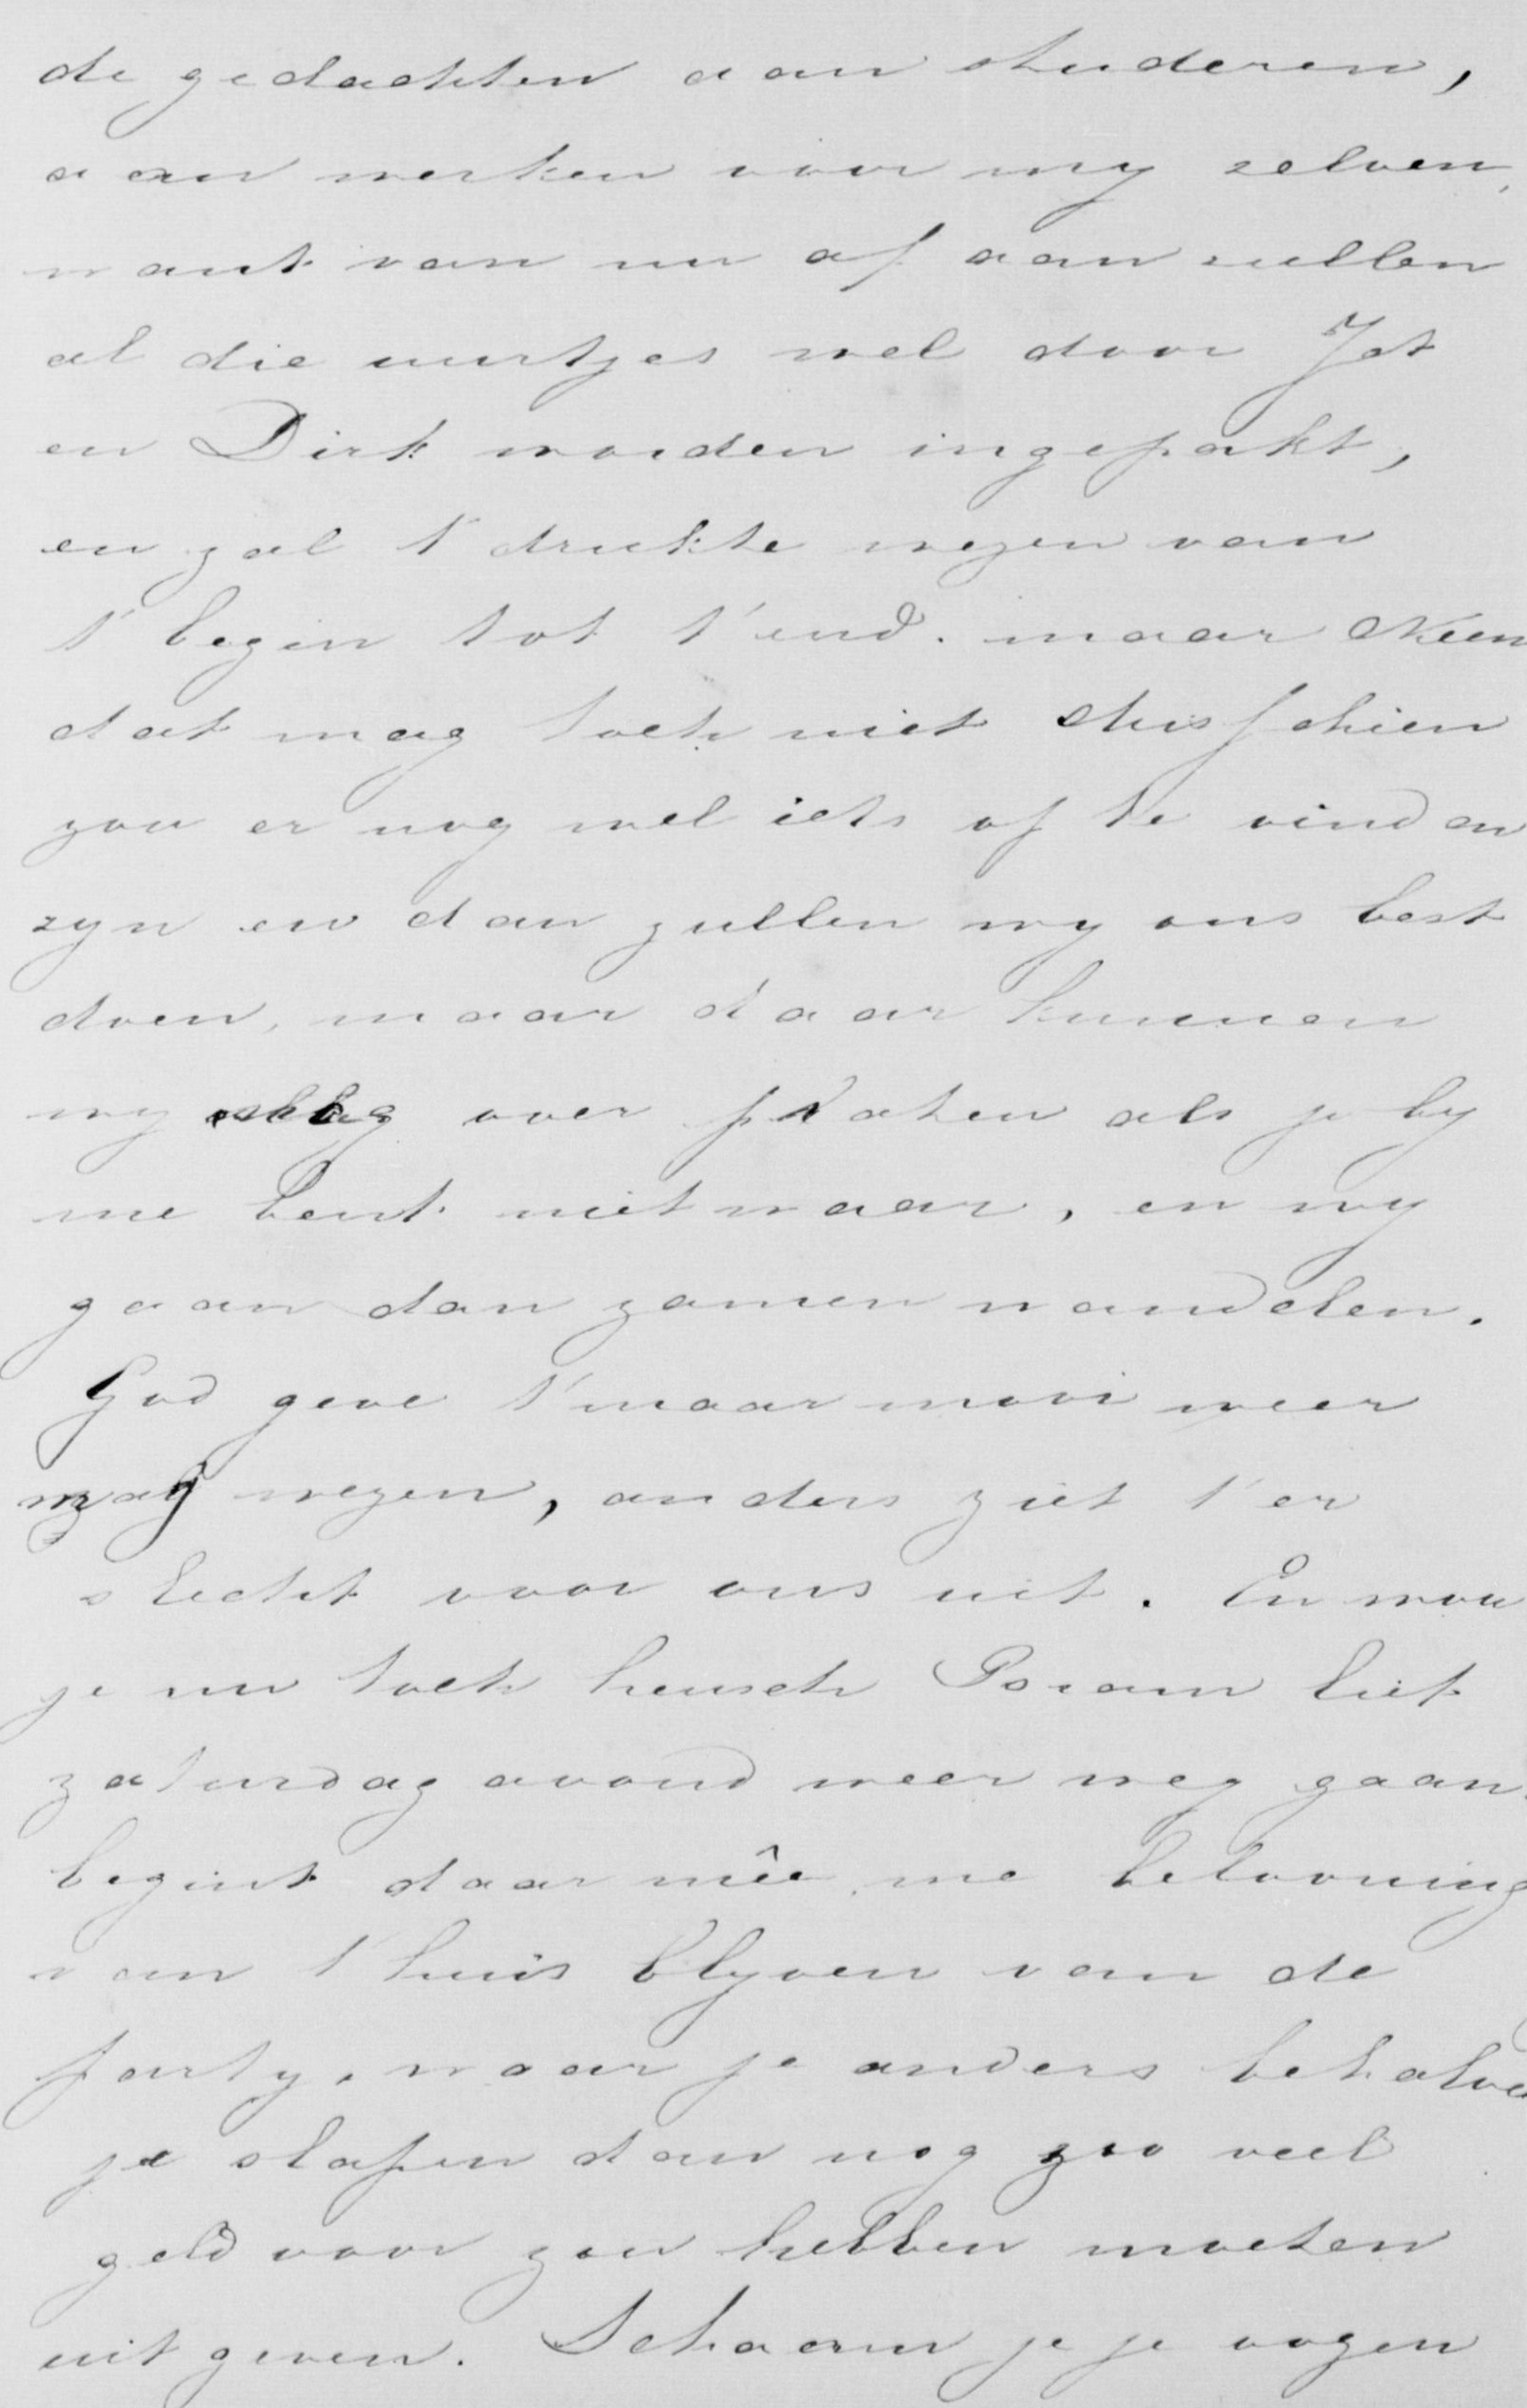 de gedachten aan studeren,
aan werken voor my zelven,
want van nu af aan zullen
al die uurtjes wel door Jet
en Dirk worden ingepakt,
en zal t' drukte wezen van
t' begin tot t' end. maar Neen
dat mag toch niet Misschien
zou er nog wel iets op te vinden
zyn en dan zullen wy ons best
doen, maar daar kunnen
wy over praten als je by
me bent niet waar, en wy
gaan dan zamen wandelen.
God geve t' maar mooi weer
mag wezen, anders ziet t' er
slecht voor ons uit. En wou
je nu toch heusch Boram liet
zaturdag avond weer weg gaan.
begint daar mêe me belooning
van t' huis blyven van de
party, waar je anders behalve
je slapen dan nog zoo veel
geld voor zou hebben moeten
uit geven. Schaam je je oogen